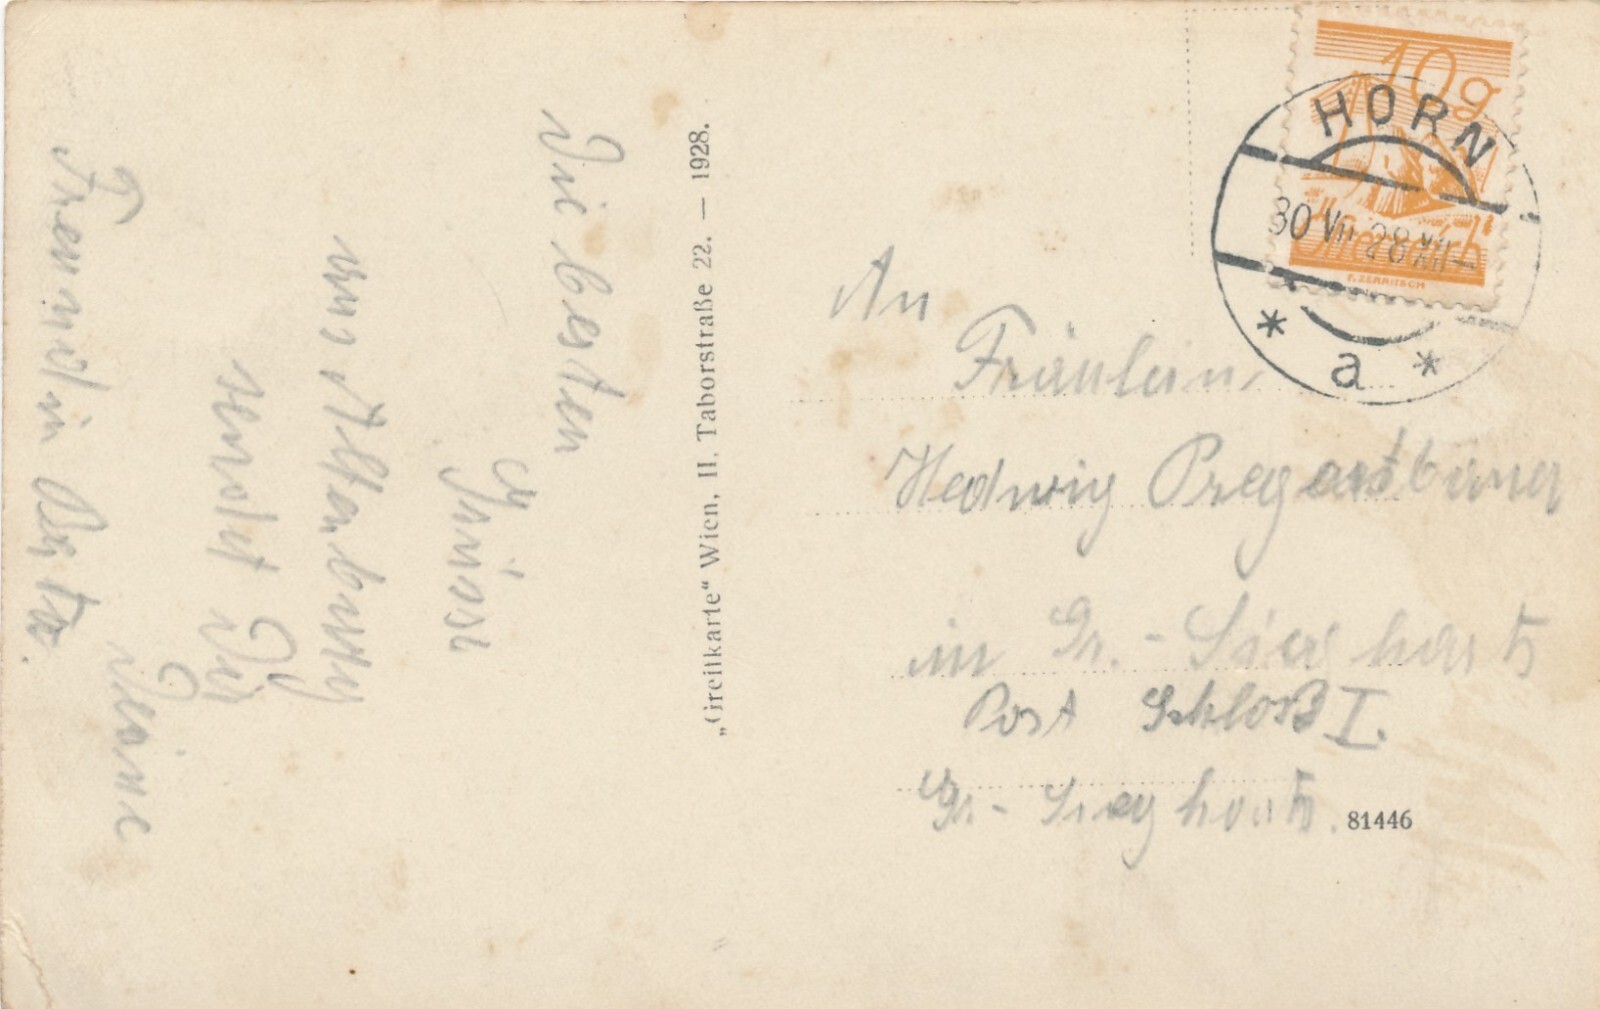 Die besten
Grüsse
aus Altenburg
sendet Dir
Deine
Freundin Berta.
„Greifkarte“ Wien, II. Taborstraße 22. — 1928.
10g
Österreich
F. ZERRITSCH
HORN
30 VII 28 XII
* a *
An
Fräulein
Hedwig
in Gr.-Siegharts
Post Schloß I.
Gr-Siegharts.
81446